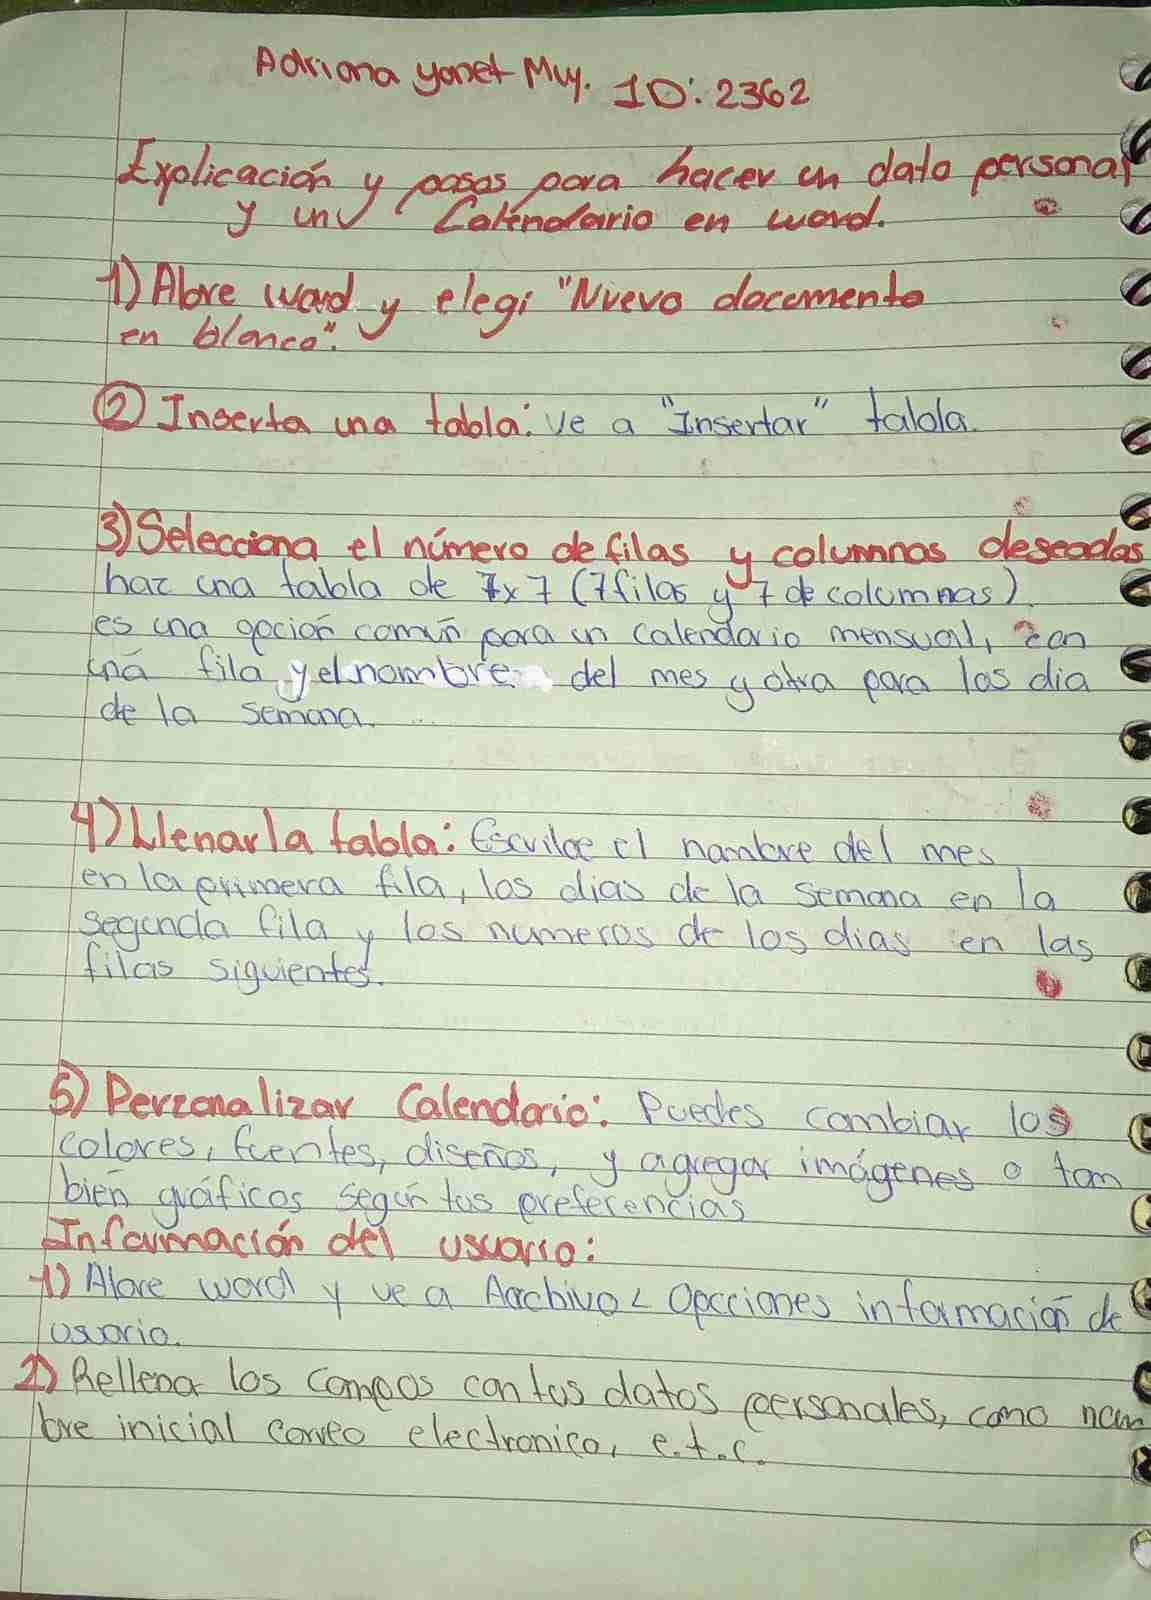 Adriana yanet Muy. ID: 2362
Explicación y pasos para hacer un dato personal
y un Calendario en word.
1) Abre word y elegi "Nuevo documento
en blanco".
2) Inserta una tabla: ve a "Insertar" tabla.
3) Selecciona el número de filas y columnas deseadas
haz una tabla de 7x7 (7 filas y 7 de columnas)
es una opción común para un calendario mensual, con
una fila y el nombre del mes y otra para los dia
de la semana.
4) Llenar la tabla: Escribe el nombre del mes
en la primera fila, los dias de la semana en la
segunda fila y los numeros de los dias en las
filas siguientes.
5) Perzonalizar Calendario: Puedes cambiar los
colores, fuentes, diseños, y agregar imágenes o tam
bién gráficos según tus preferencias
Información del usuario:
1) Abre word y ve a Archivo < Opcciones información de
usuario.
2) Rellena los campos con tus datos personales, como nom
bre inicial correo electronico, e.t.c.